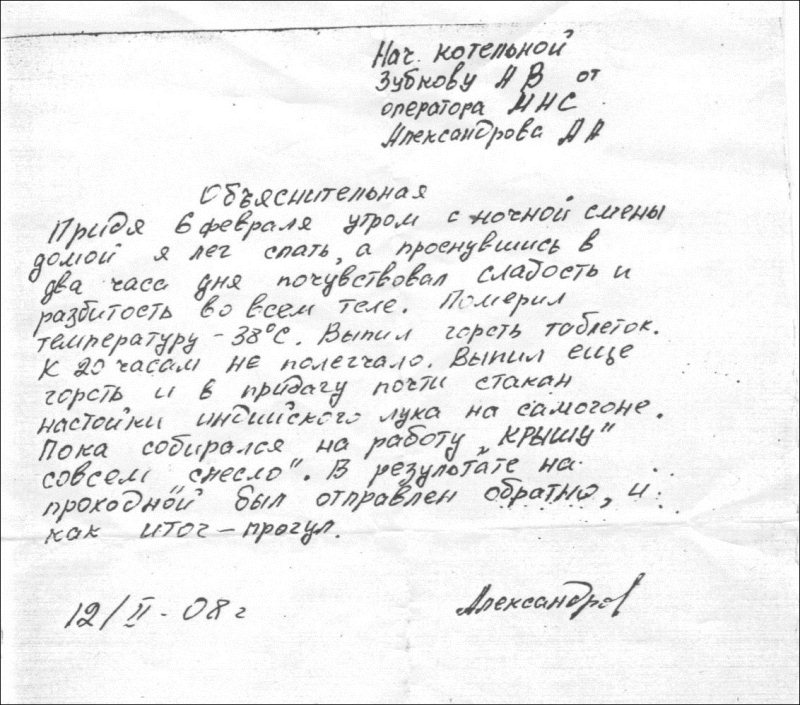 Нач. котельной
Зубкову А В от
оператора МНС
Александрова А А
Объяснительная
Придя 6 февраля утром с ночной смены
домой я лег спать, а проснувшись в
два часа дня почувствовал слабость и
разбитость во всем теле. Померил
температуру - 38°С. Выпил горсть таблеток.
К 20 часам не полегчало. Выпил еще
горсть и в придачу почти стакан
настойки индийского лука на самогоне.
Пока собирался на работу „крышу"
совсем „снесло". В результате на
проходной был отправлен обратно, и
как итог - прогул.
12/II - 08 г
Александров